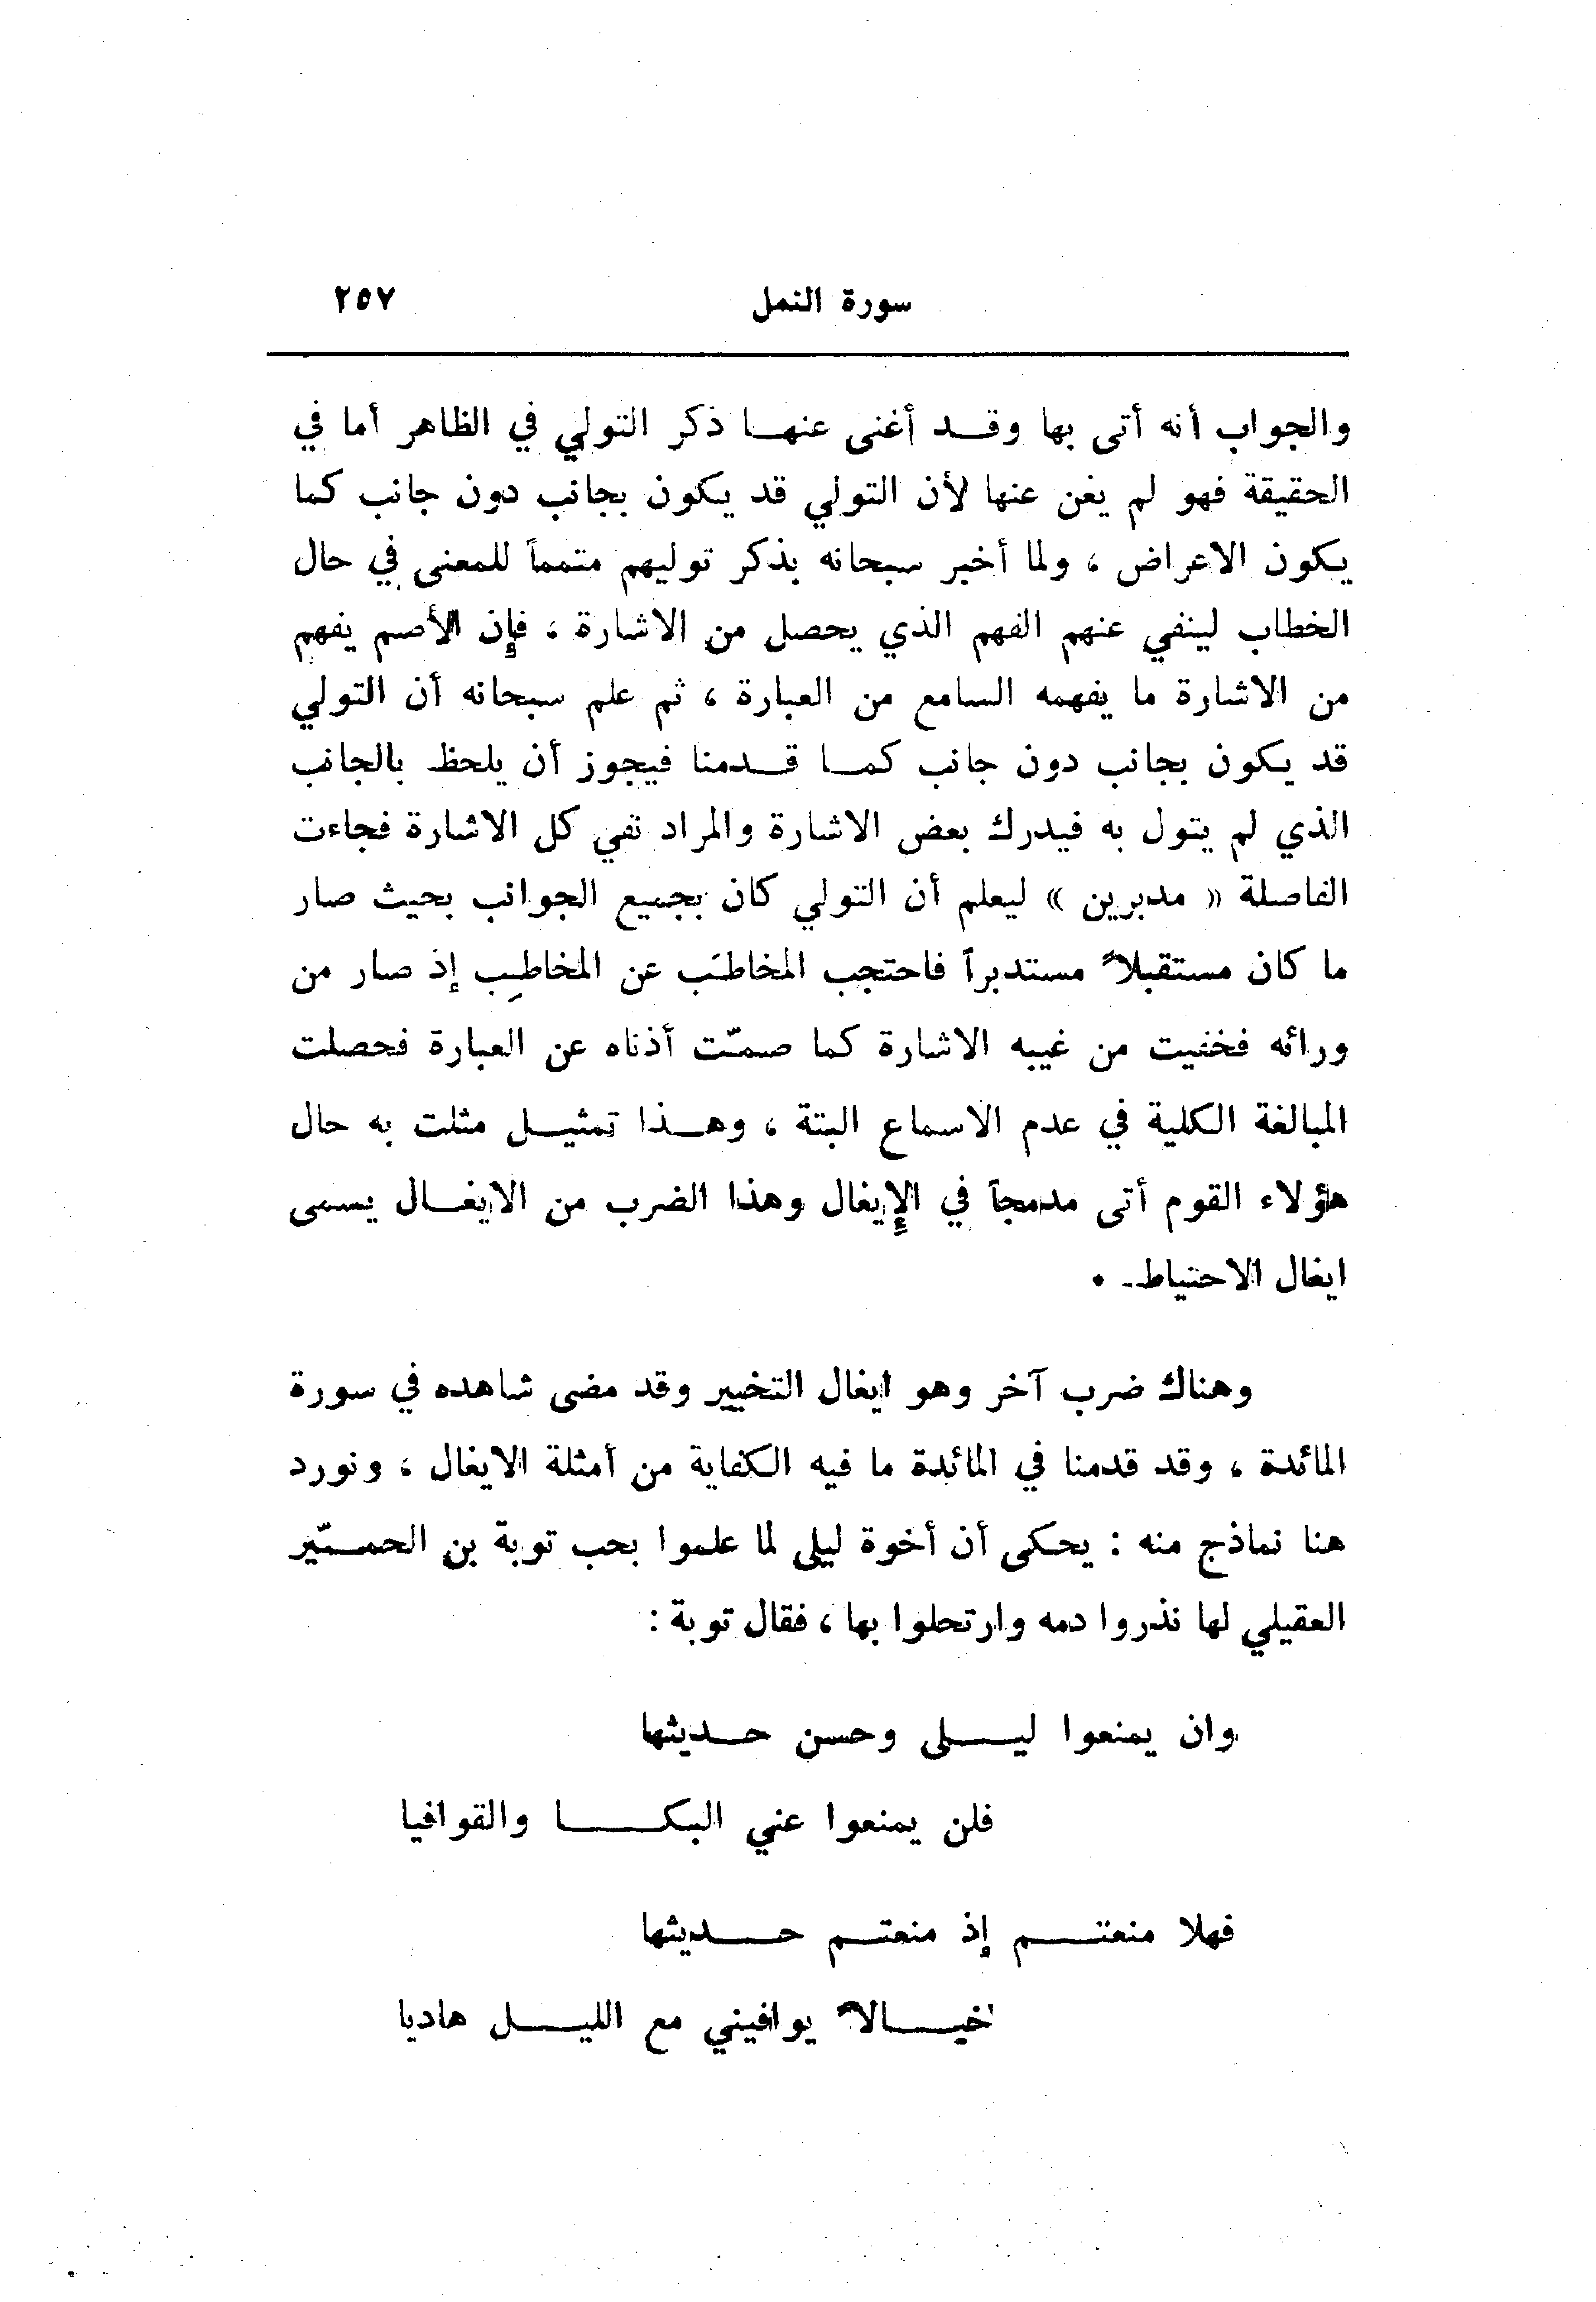 سورة النمل ٢٥٧
والجواب أنه أتى بها وقد أغنى عنها ذكر التولي في الظاهر أما في
الحقيقة فهو لم يغن عنها لأن التولي قد يكون بجانب دون جانب كما
يكون الاعراض ، ولما أخبر سبحانه بذكر توليهم متمماً للمعنى في حال
الخطاب لينفي عنهم الفهم الذي يحصل من الاشارة ، فإن الأصم يفهم
من الاشارة ما يفهمه السامع من العبارة ، ثم علم سبحانه أن التولي
قد يكون بجانب دون جانب كما قدمنا فيجوز أن يلحظ بالجانب
الذي لم يتول به فيدرك بعض الاشارة والمراد نفي كل الاشارة فجاءت
الفاصلة « مدبرين » ليعلم أن التولي كان بجميع الجوانب بحيث صار
ما كان مستقبلاً مستدبراً فاحتجب المخاطَب عن المخاطِب إذ صار من
ورائه فخفيت من غيبه الاشارة كما صمّت أذناه عن العبارة فحصلت
المبالغة الكلية في عدم الاسماع البتة ، وهذا تمثيل مثلت به حال
هؤلاء القوم أتى مدمجاً في الإيغال وهذا الضرب من الايغال يسمى
ايغال الاحتياط .
وهناك ضرب آخر وهو ايغال التخيير وقد مضى شاهده في سورة
المائدة ، وقد قدمنا في المائدة ما فيه الكفاية من أمثلة الايغال ، ونورد
هنا نماذج منه : يحكى أن أخوة ليلى لما علموا بحب توبة بن الحميّر
العقيلي لها نذروا دمه وارتحلوا بها ، فقال توبة :
وان يمنعوا ليلى وحسن حديثها
فلن يمنعوا عني البكا والقوافيا
فهلا منعتم إذ منعتم حديثها
خيالاً يوافيني مع الليل هاديا